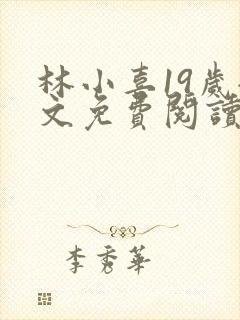 林小喜19歲
文免費閱讀
李秀華